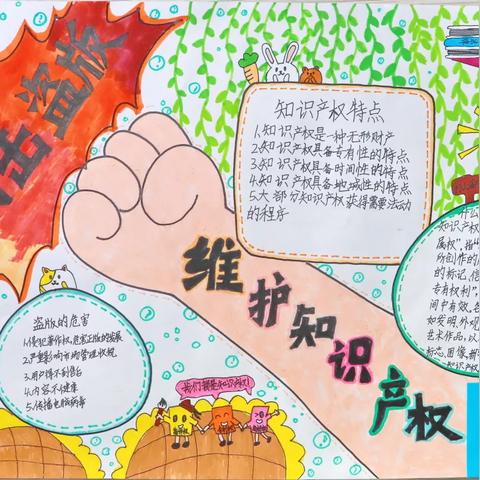 击盗版
知识产权特点
1.知识产权是一种无形财产
2.知识产权具备专有性的特点
3.知识产权具备时间性的特点
4.知识产权具备地域性的特点
5.大部分知识产权获得需要法动
的程序
维护知识产权
盗版的危害
1.侵犯著作权,危害正版的发展
2.严重影响市场管理状况
3.用户得不到售后
4.内容不健康
5.传播电脑病毒
什么
知识产权
属权",指"
所创作的
的标记,信
专有权利",
间中有效,各
如发明,外观
艺术作品,以
标志,图像,都
知识产权